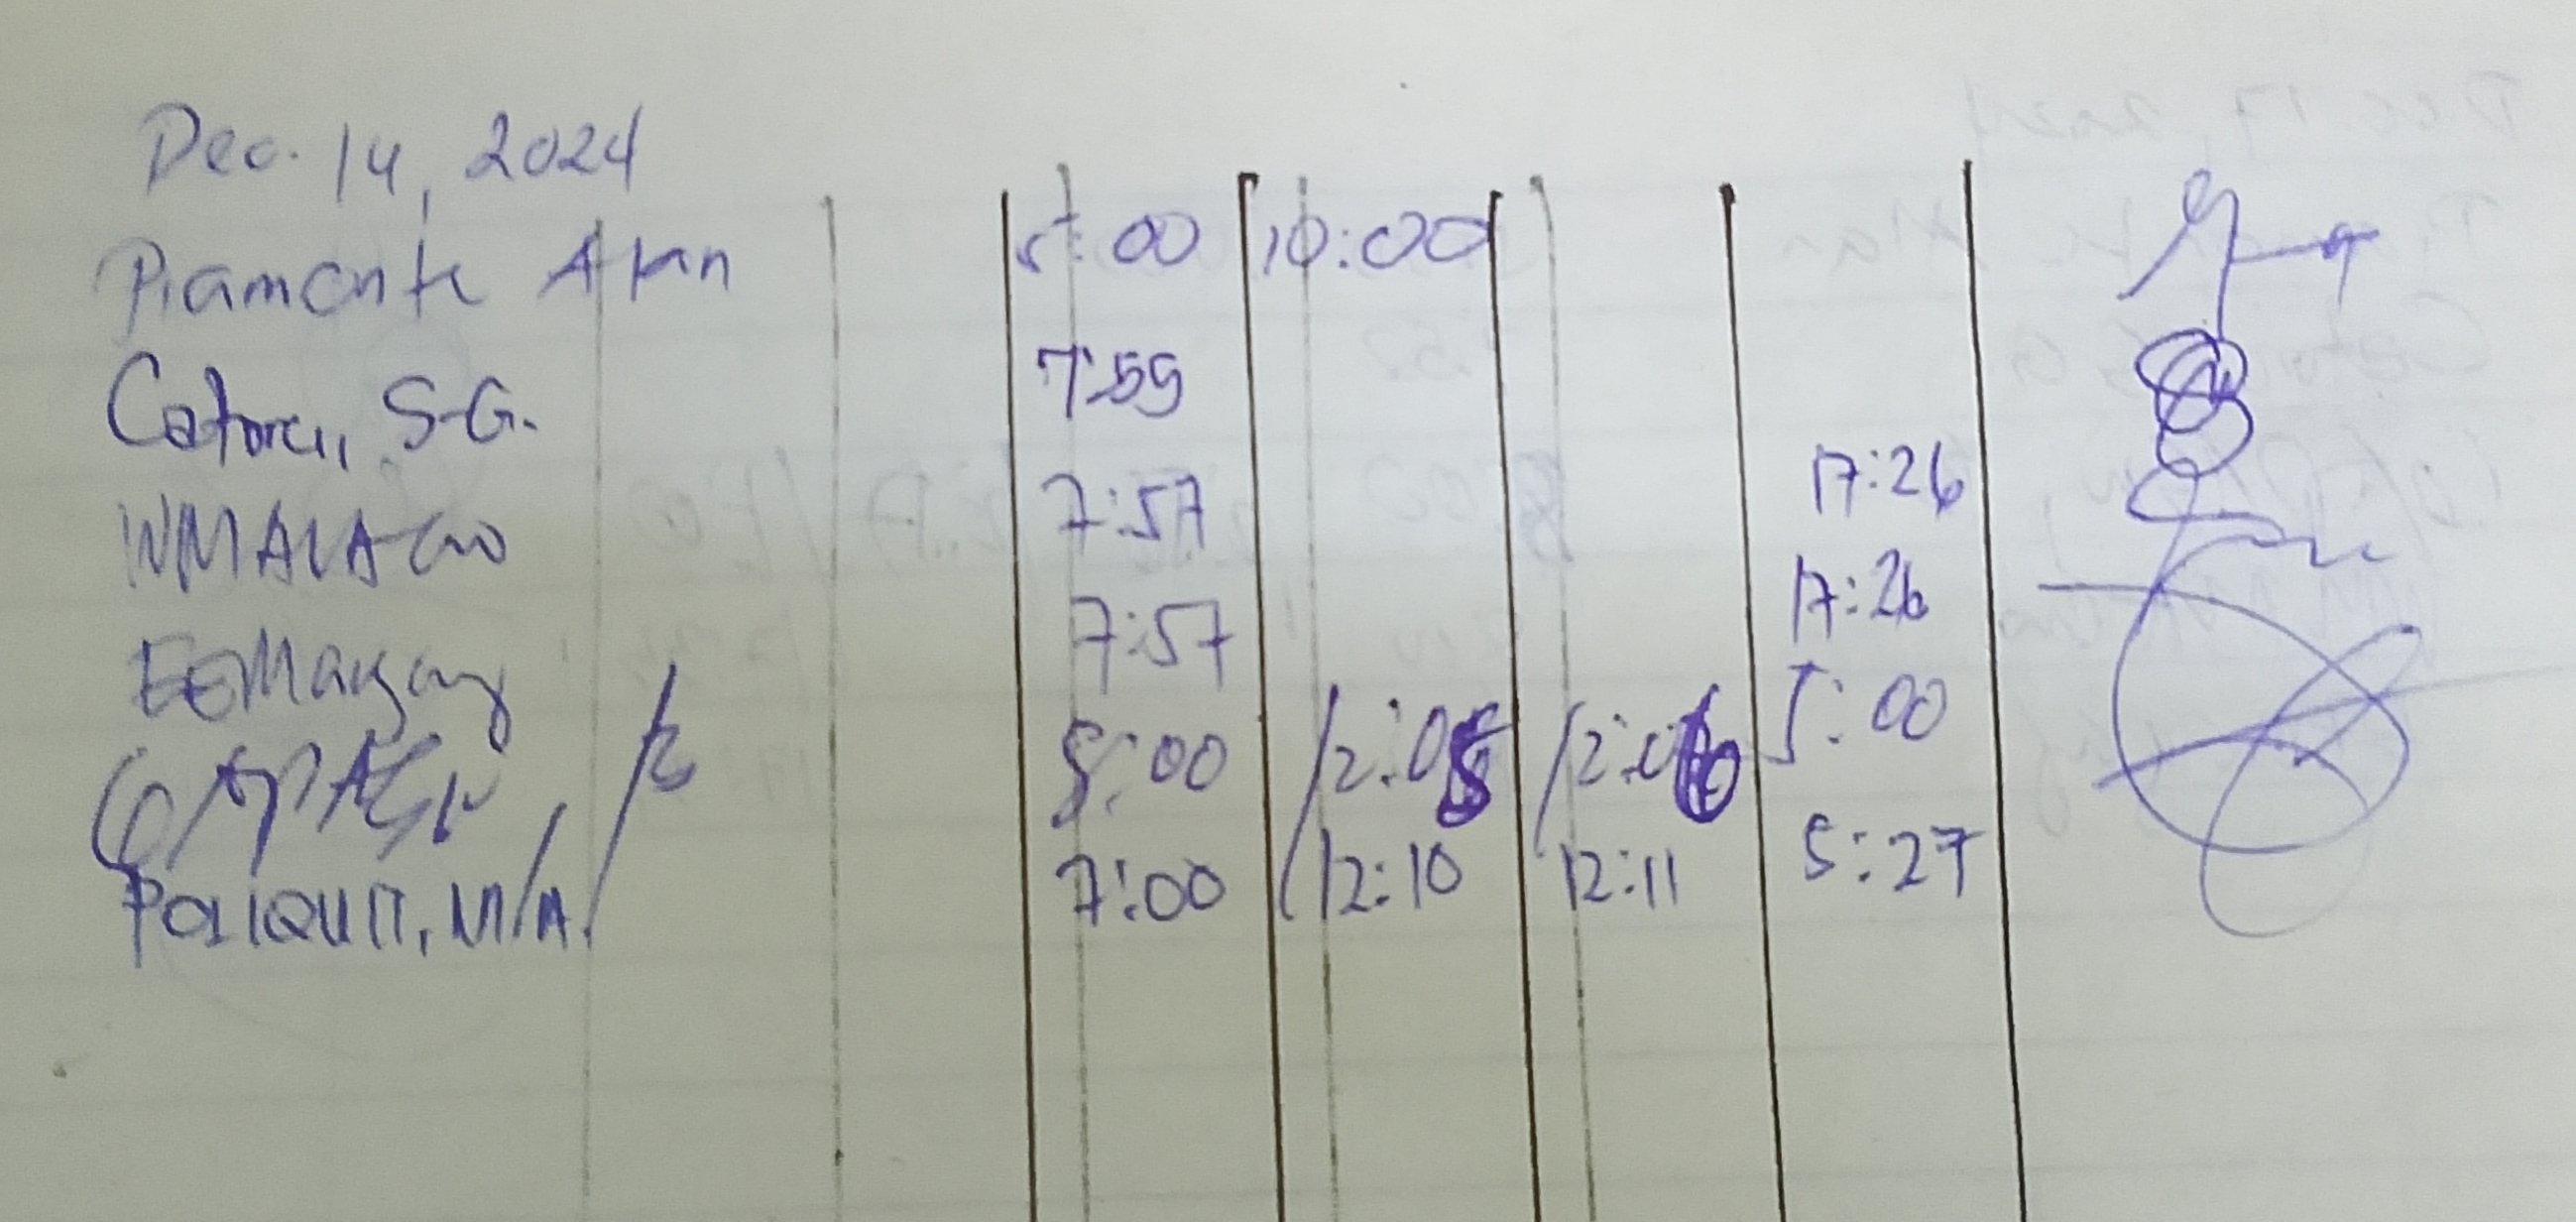 Dec. 14, 2024
Piamonte Alan 5:00 10:00
Catora, S.G. 7:59
WMALA 7:57 17:26
7:57 17:26
8:00 12:05 12:06 5:00
POLIQUIT, M/A. 7:00 12:10 12:11 5:27